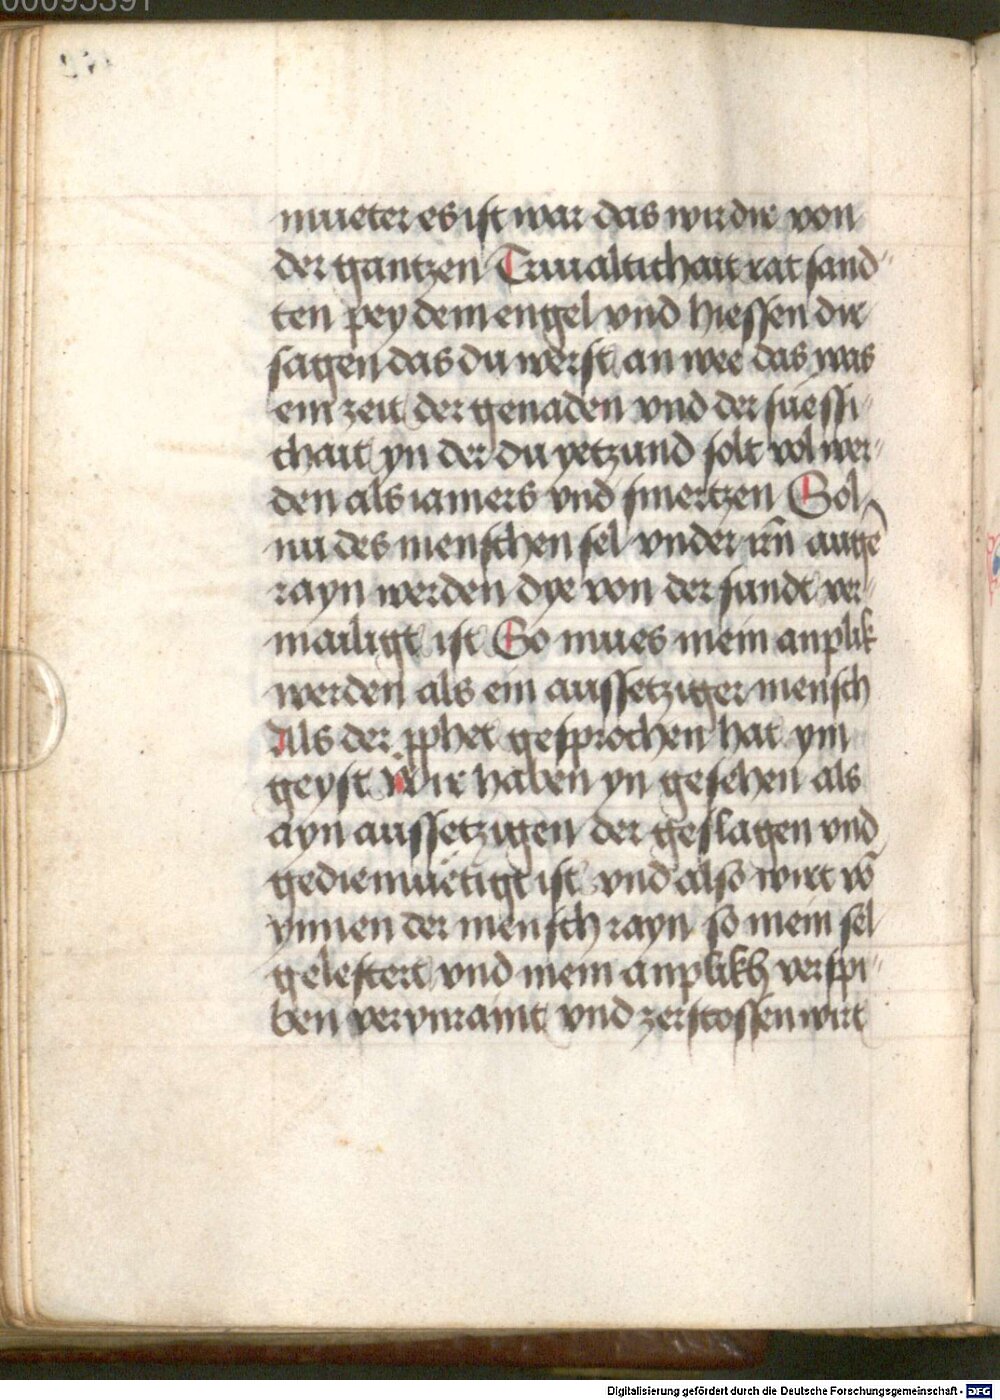 00095391
mueter es ist war das wir dir von
der gantzen Triualtichait rat sand-
ten pey dem engel vnd hiessen dir
sagen das du werst an wee das was
ein zeit der genaden vnd der suessi-
chait yn der du yetzund solt vol wer-
den als iamers vnd smertzen Sol
nu des menschen sel vnder irn̄ augē
rayn werden dye von der sundt ver-
mailigt ist So mues mein anplik
werden als ein aussetziger mensch
Als der pphet gesprochen hat ym
geyst Wir haben yn gesehen als
ayn aussetzigen der geslagen vnd
gediemuetigt ist vnd also wirt vō
ynnen der mensch rayn so mein sel
gelestert vnd mein anplikh verspi-
ben vervnraint vnd zerstossen wirt
Digitalisierung gefördert durch die Deutsche Forschungsgemeinschaft - DFG